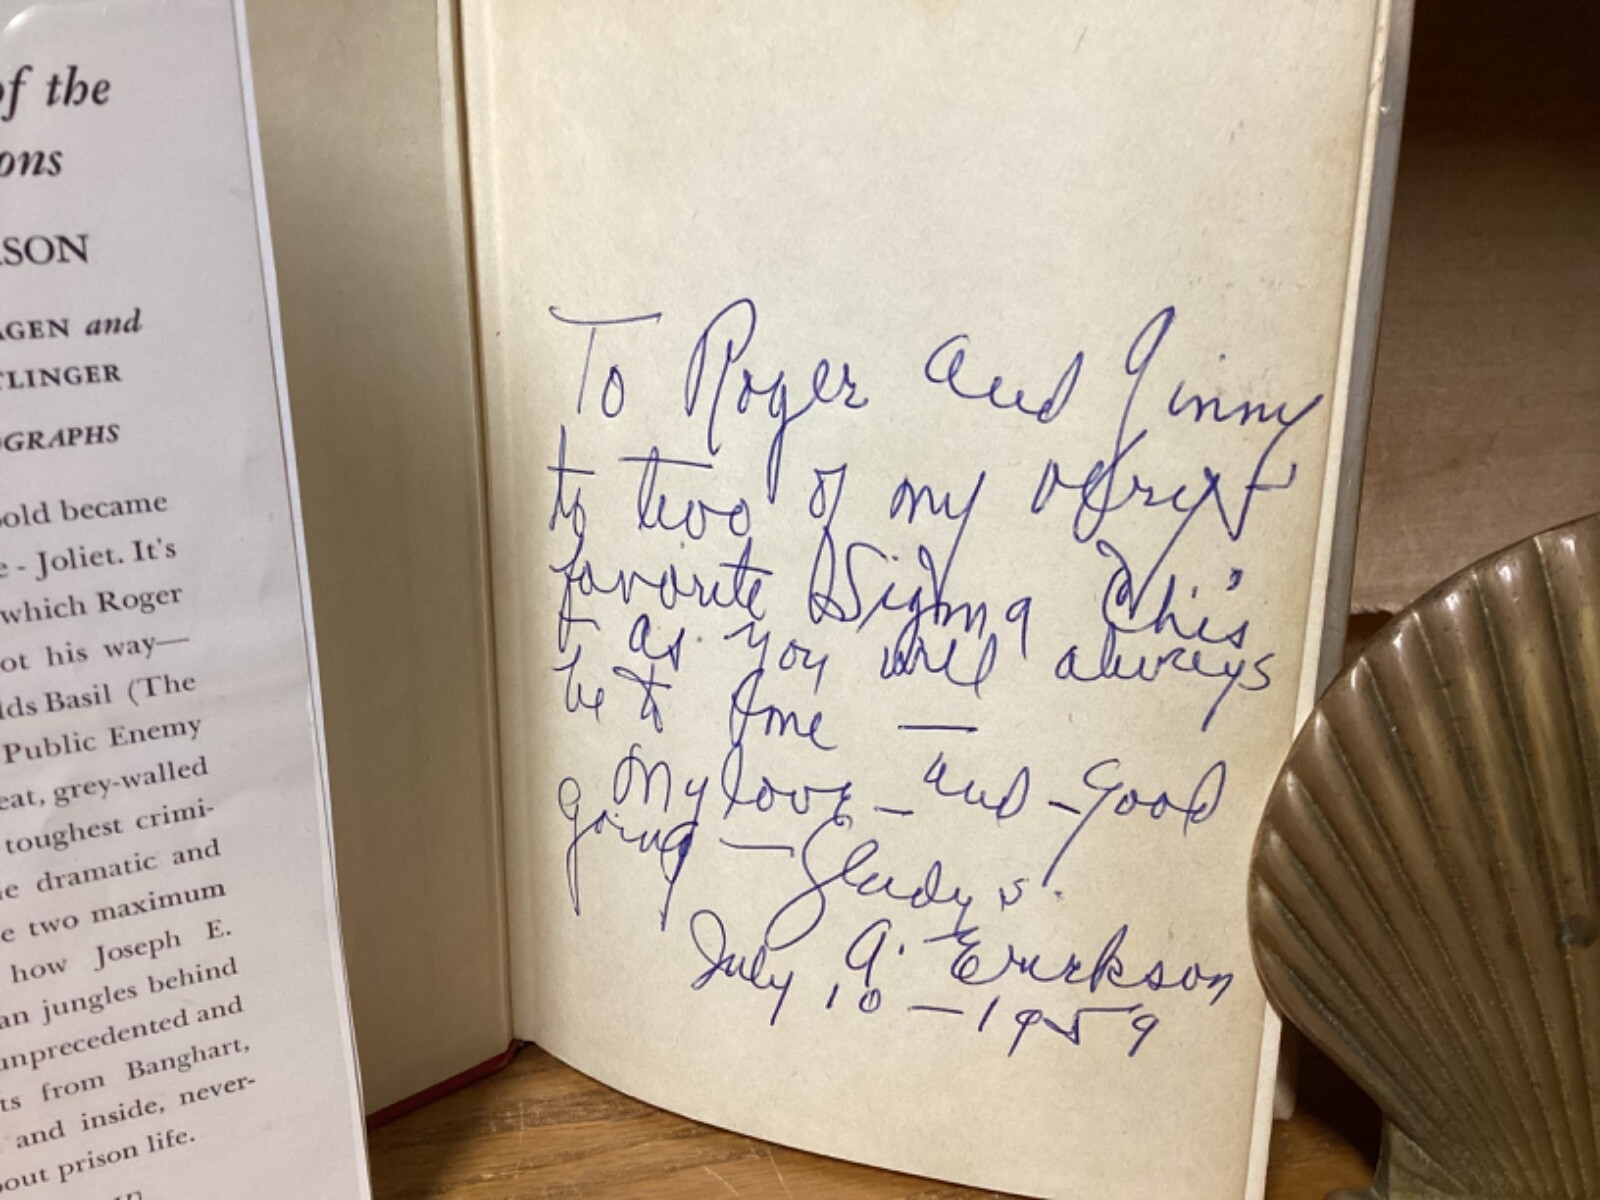 of the
ons
SON
AGEN and
TLINGER
OGRAPHS
old became
e - Joliet. It's
which Roger
ot his way—
lds Basil (The
Public Enemy
eat, grey-walled
toughest crimi-
e dramatic and
e two maximum
how Joseph E.
an jungles behind
unprecedented and
ts from Banghart,
and inside, never-
out prison life.
To Roger and Ginny
to two of my
favorite Sigma Chis
as you will always
be to me —
My love — and — Good
going — Gladys
A. Erickson
July 10 — 1959